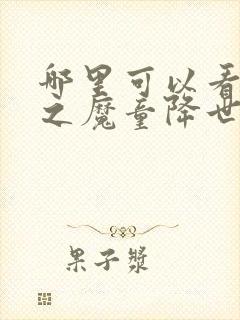 哪里可以看
之魔童降世
果子浆